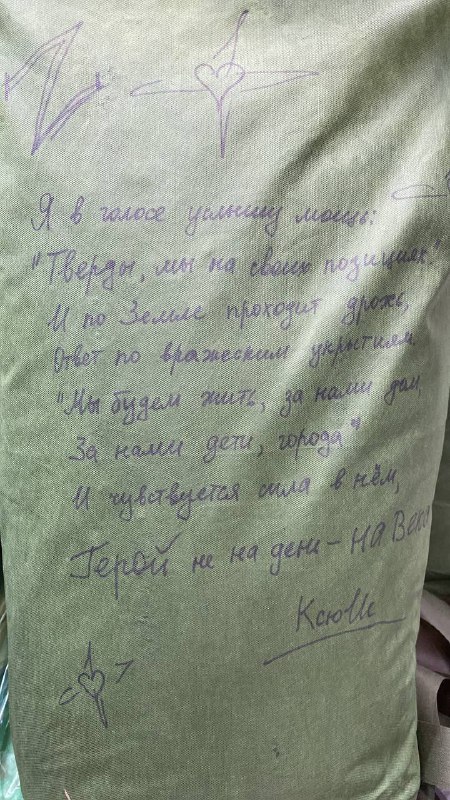 Z
Я в голосе услышу мощь:
"Тверды, мы на своих позициях."
И по Земле проходит дрожь,
Ответ по вражеским укрытиям
"Мы будем жить, за нами дом,
За нами дети, города"
И чувствуется сила в нём,
Герой не на день - на Века